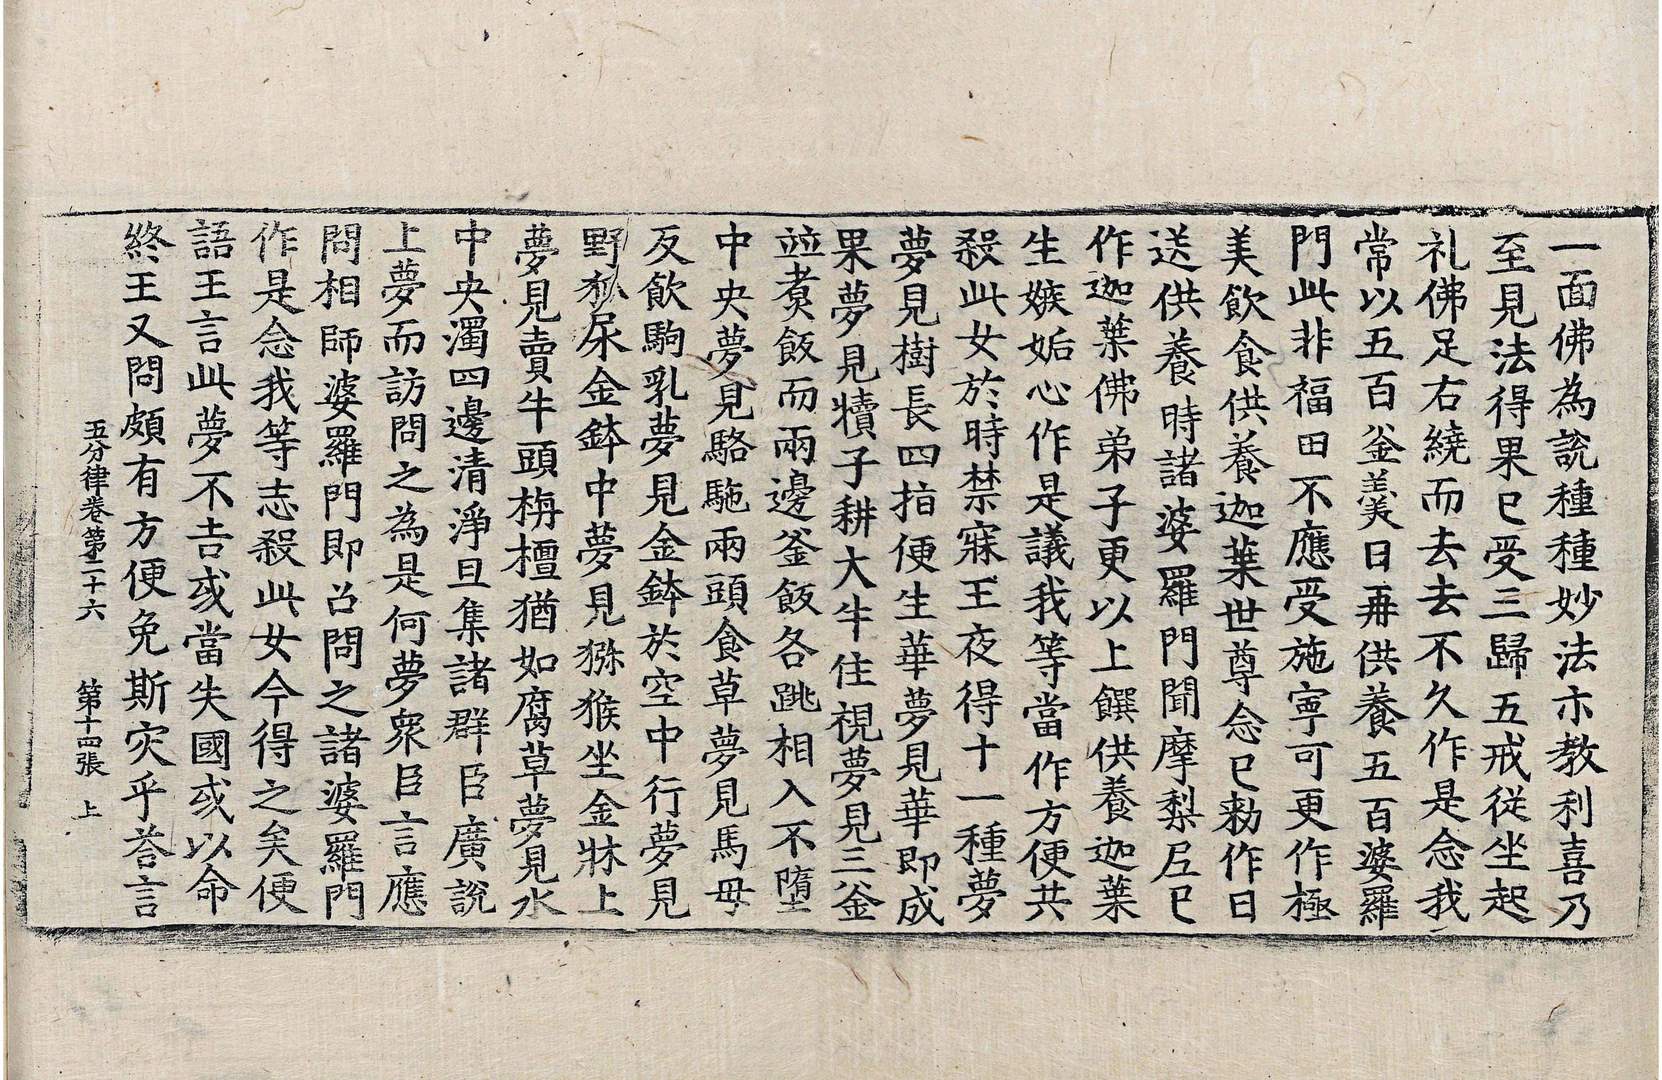 一面佛為說種種妙法示教利喜乃
至見法得果已受三歸五戒從坐起
礼佛足右繞而去去不久作是念我
常以五百釜羹日再供養五百婆羅
門此非福田不應受施寧可更作極
美飲食供養迦葉世尊念已勑作日
送供養時諸婆羅門聞摩梨尼已
作迦葉佛弟子更以上饌供養迦葉
生嫉妬心作是議我等當作方便共
殺此女於時禁寐王夜得十一種夢
夢見樹長四指便生華夢見華即成
果夢見犢子耕大牛住視夢見三釜
竝煑飯而兩邊釜飯各跳相入不墮
中央夢見駱駞兩頭食草夢見馬母
反飲駒乳夢見金鉢於空中行夢見
野狐尿金鉢中夢見猕猴坐金牀上
夢見賣牛頭栴檀猶如腐草夢見水
中央濁四邊清淨旦集諸群臣廣說
上夢而訪問之為是何夢衆臣言應
問相師婆羅門即召問之諸婆羅門
作是念我等志殺此女今得之矣便
語王言此夢不吉或當失國或以命
終王又問頗有方便免斯灾乎荅言
五分律卷第二十六 第十四張 上